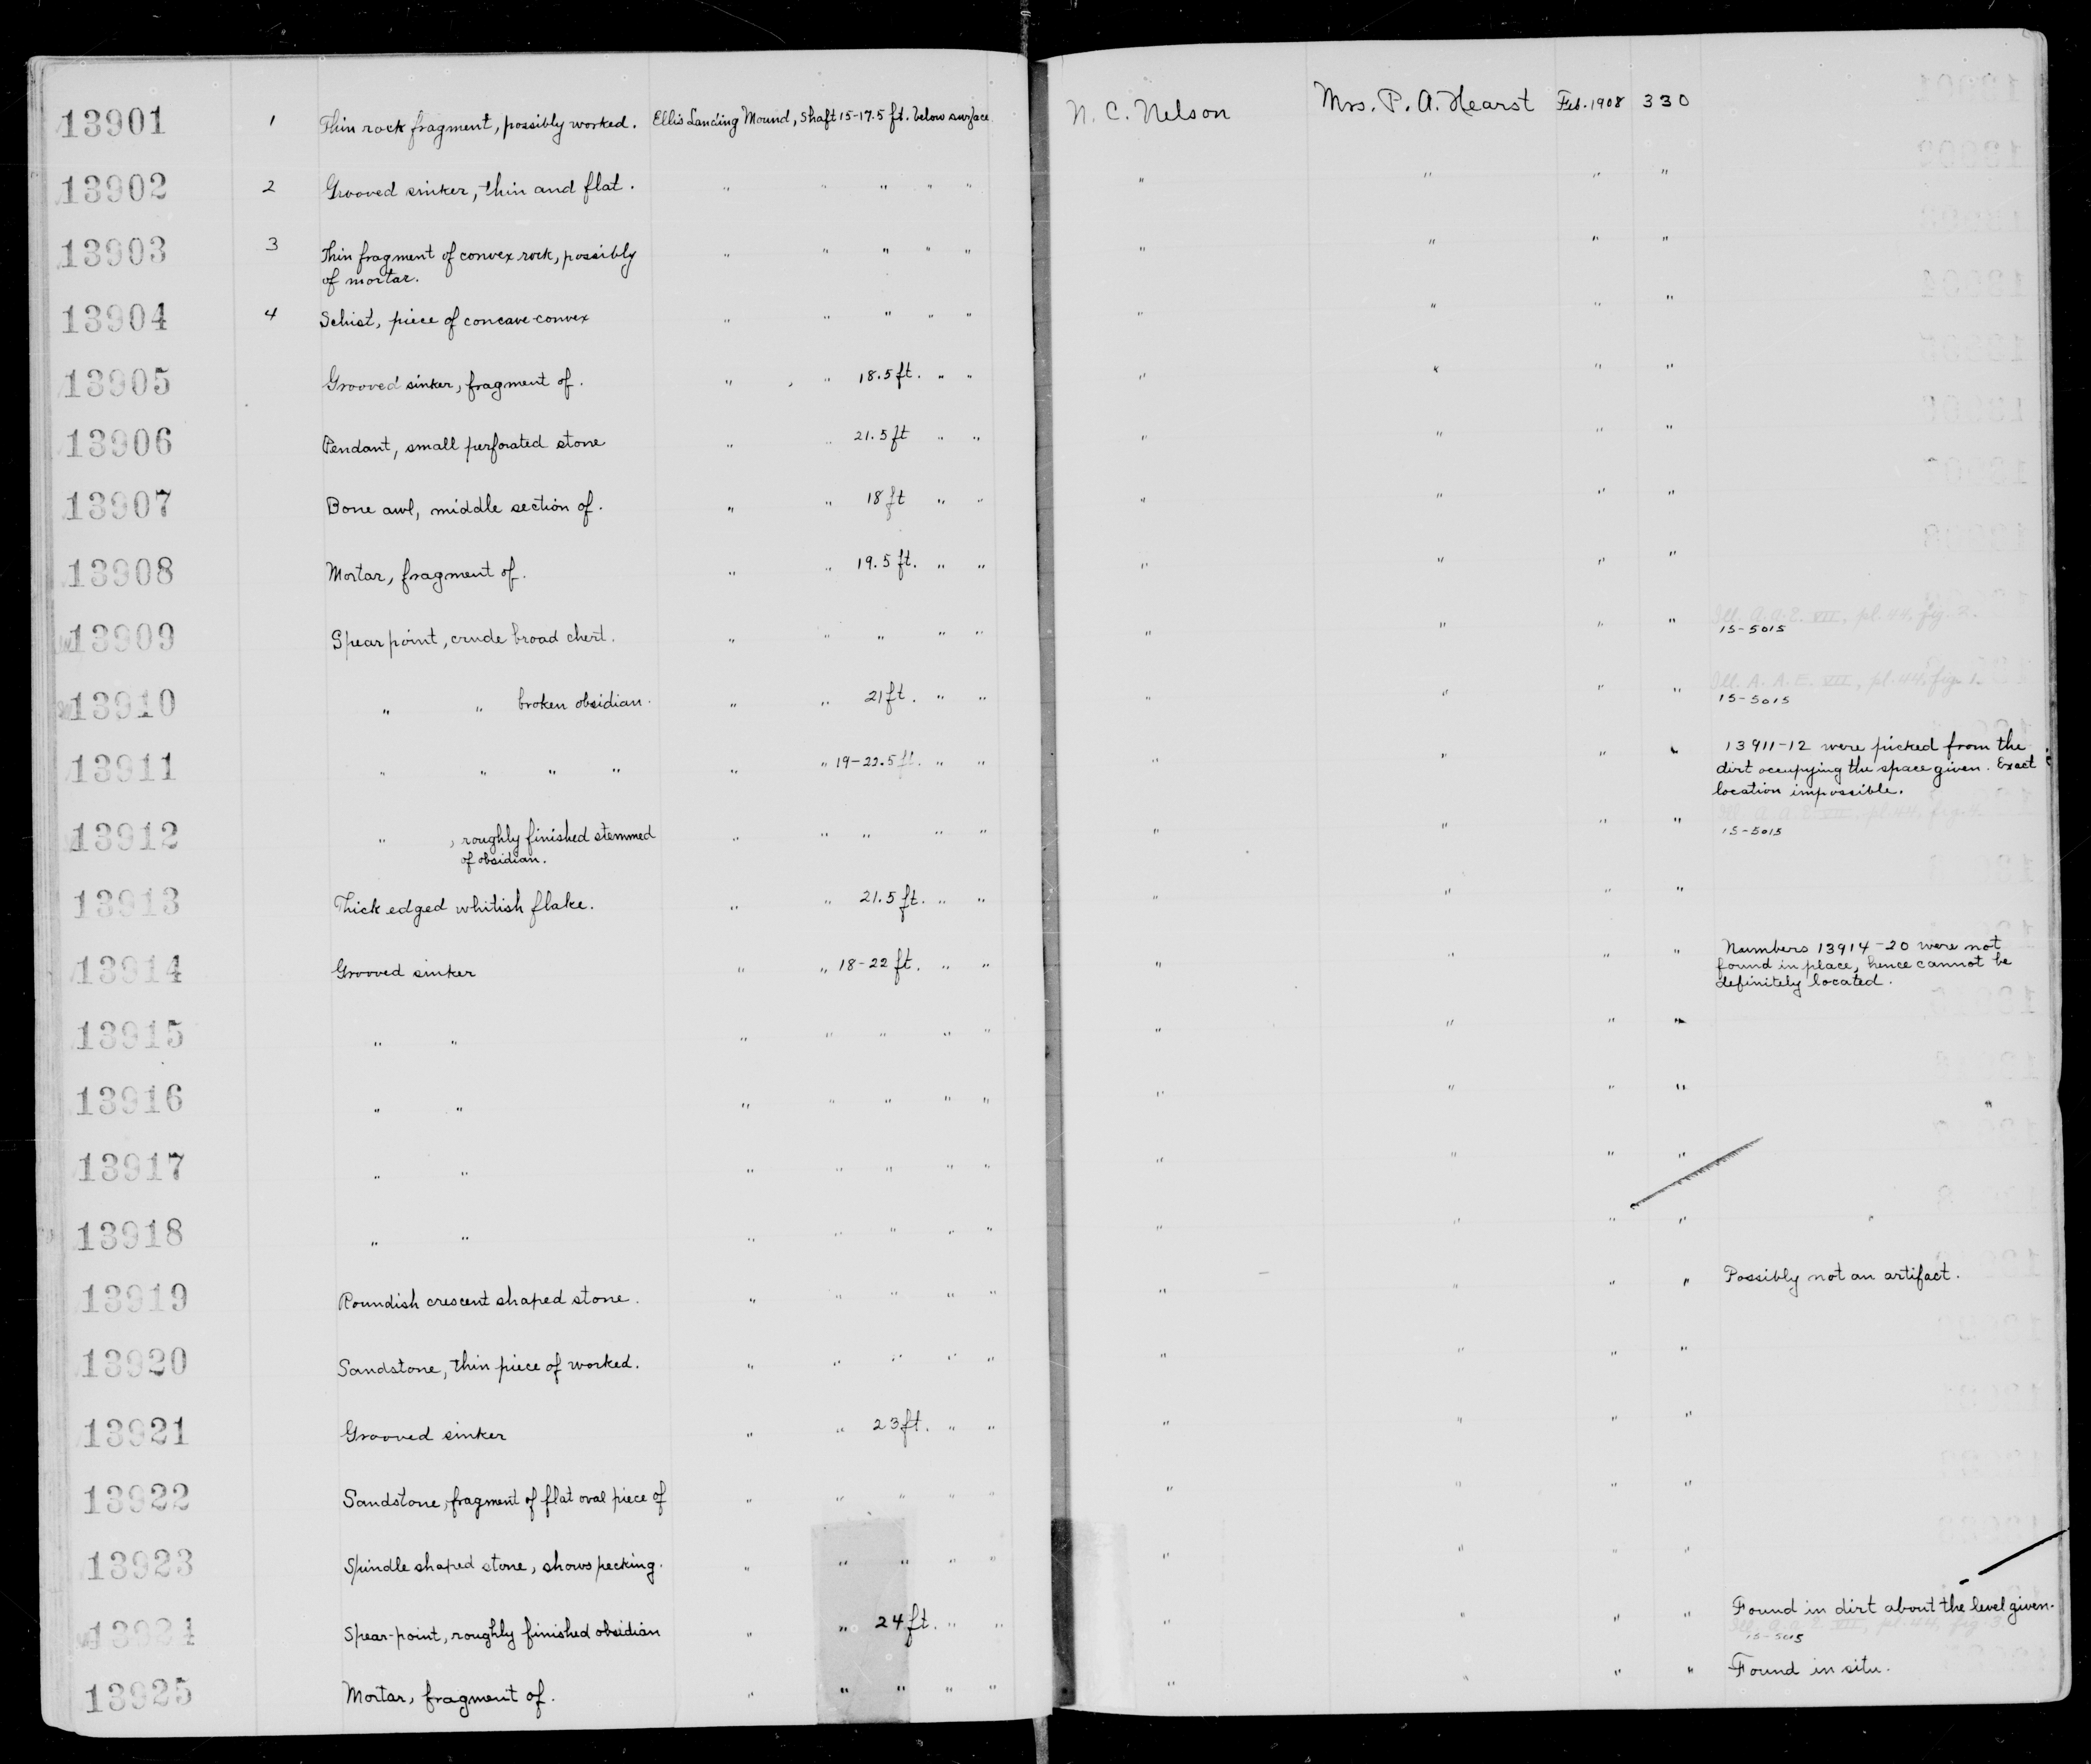 13901 1 Thin rock fragment, possibly worked. Ellis Landing Mound, Shaft 15-17.5 ft. below surface N. C. Nelson Mrs. P. A. Hearst Feb. 1908 330
13902 2 Grooved sinker, thin and flat. " " " " " " " " "
13903 3 Thin fragment of convex rock, possibly " " " " " " " " "
of mortar.
13904 4 Schist, piece of concave-convex " " " " " " " " "
13905 Grooved sinker, fragment of. " " 18.5 ft. " " " " " "
13906 Pendant, small perforated stone " " 21.5 ft " " " " " "
13907 Bone awl, middle section of. " " 18 ft " " " " " "
13908 Mortar, fragment of. " " 19.5 ft. " " " " " "
13909 Spear point, crude broad chert. " " " " " " " " " Ill. A.A.E. VII, pl. 44, fig. 2.
15-5015
13910 " " broken obsidian. " " 21 ft. " " " " " " Ill. A. A. E. VII, pl. 44, fig. 1.
15-5015
13911 " " " " " " 19-22.5 ft. " " " " " " 13911-12 were picked from the
dirt occupying the space given. Exact
location impossible.
13912 " , roughly finished stemmed " " " " " " " " " Ill. A. A. E. VII, pl. 44, fig. 4.
of obsidian. 15-5015
13913 Thick edged whitish flake. " " 21.5 ft. " " " " " "
13914 Grooved sinker " " 18-22 ft. " " " " " " Numbers 13914-20 were not
found in place, hence cannot be
definitely located.
13915 " " " " " " " " " " "
13916 " " " " " " " " " " " "
13917 " " " " " " " " " " "
13918 " " " " " " " " " " " "
13919 Roundish crescent shaped stone. " " " " " " " " " Possibly not an artifact.
13920 Sandstone, thin piece of worked. " " " " " " " " "
13921 Grooved sinker " " 23 ft. " " " " " "
13922 Sandstone, fragment of flat oval piece of " " " " " " " " "
13923 Spindle shaped stone, shows pecking. " " " " " " " " "
13924 Spear-point, roughly finished obsidian " " 24 ft. " " " " " " Found in dirt about the level given.
Ill. A. A. E. VII, pl. 44, fig. 3
15-5015
13925 Mortar, fragment of. " " " " " " " " " Found in situ.